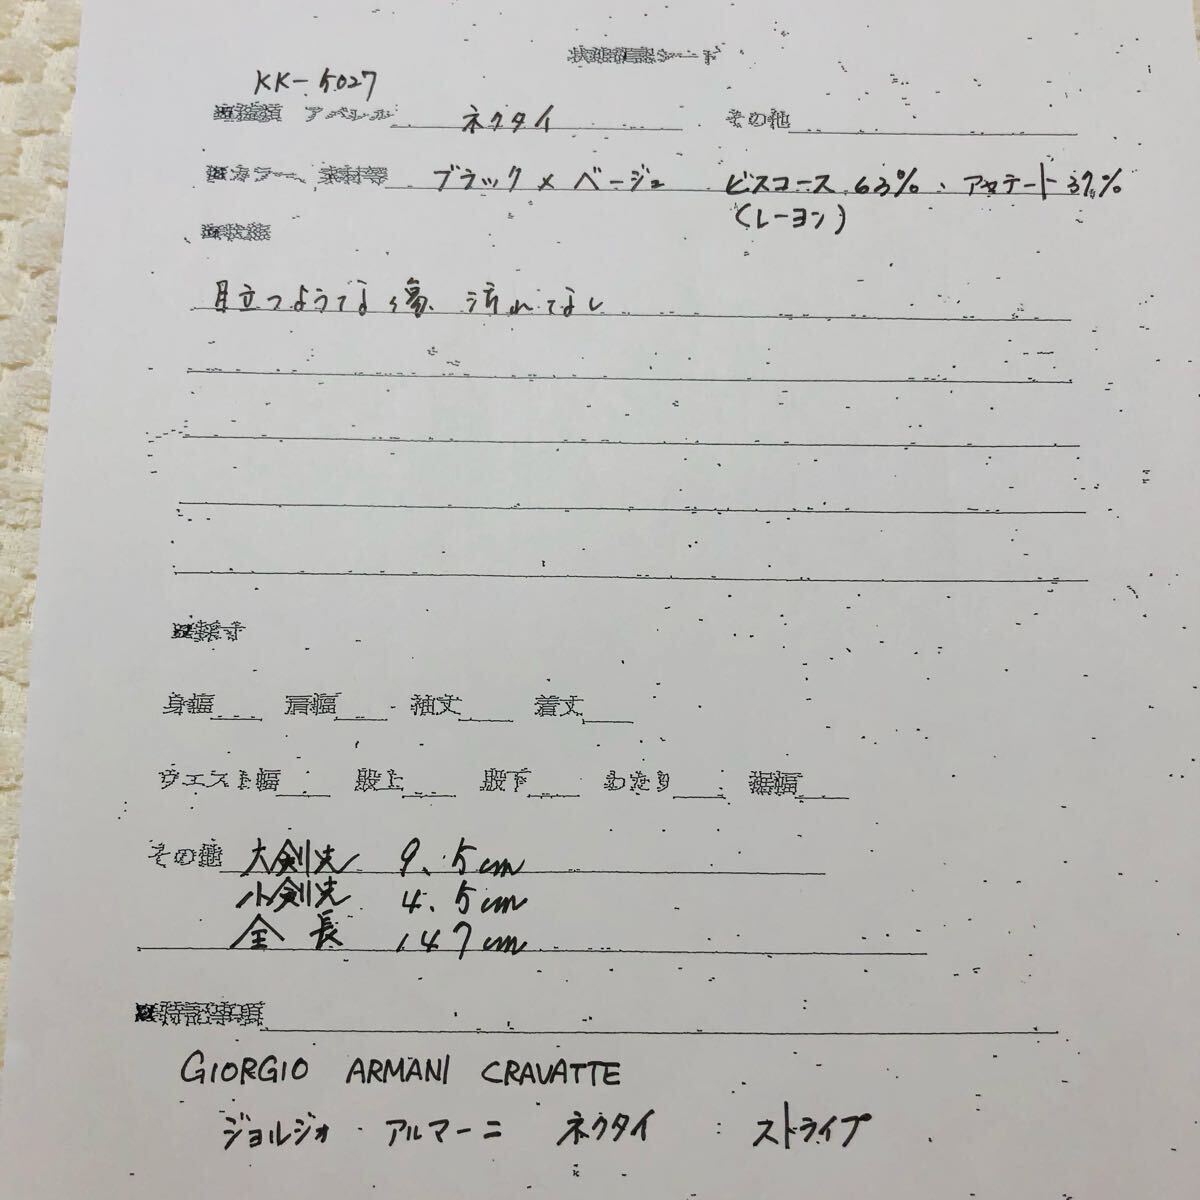 状態確認シート
KK-5027
■種類 アパレル ネクタイ その他
■カラー、素材等 ブラック×ベージュ ビスコース 63%、アセテート37%
(レーヨン)
■状態
目立つようてな傷、汚れてなし
■採寸
身幅 肩幅 袖丈 着丈
ウエスト幅 股上 股下 わたり 裾幅
その他 大剣先 9.5cm
小剣先 4.5cm
全長 147cm
■特記事項
GIORGIO ARMANI CRAVATTE
ジョルジォ・アルマーニ ネクタイ : ストライプ